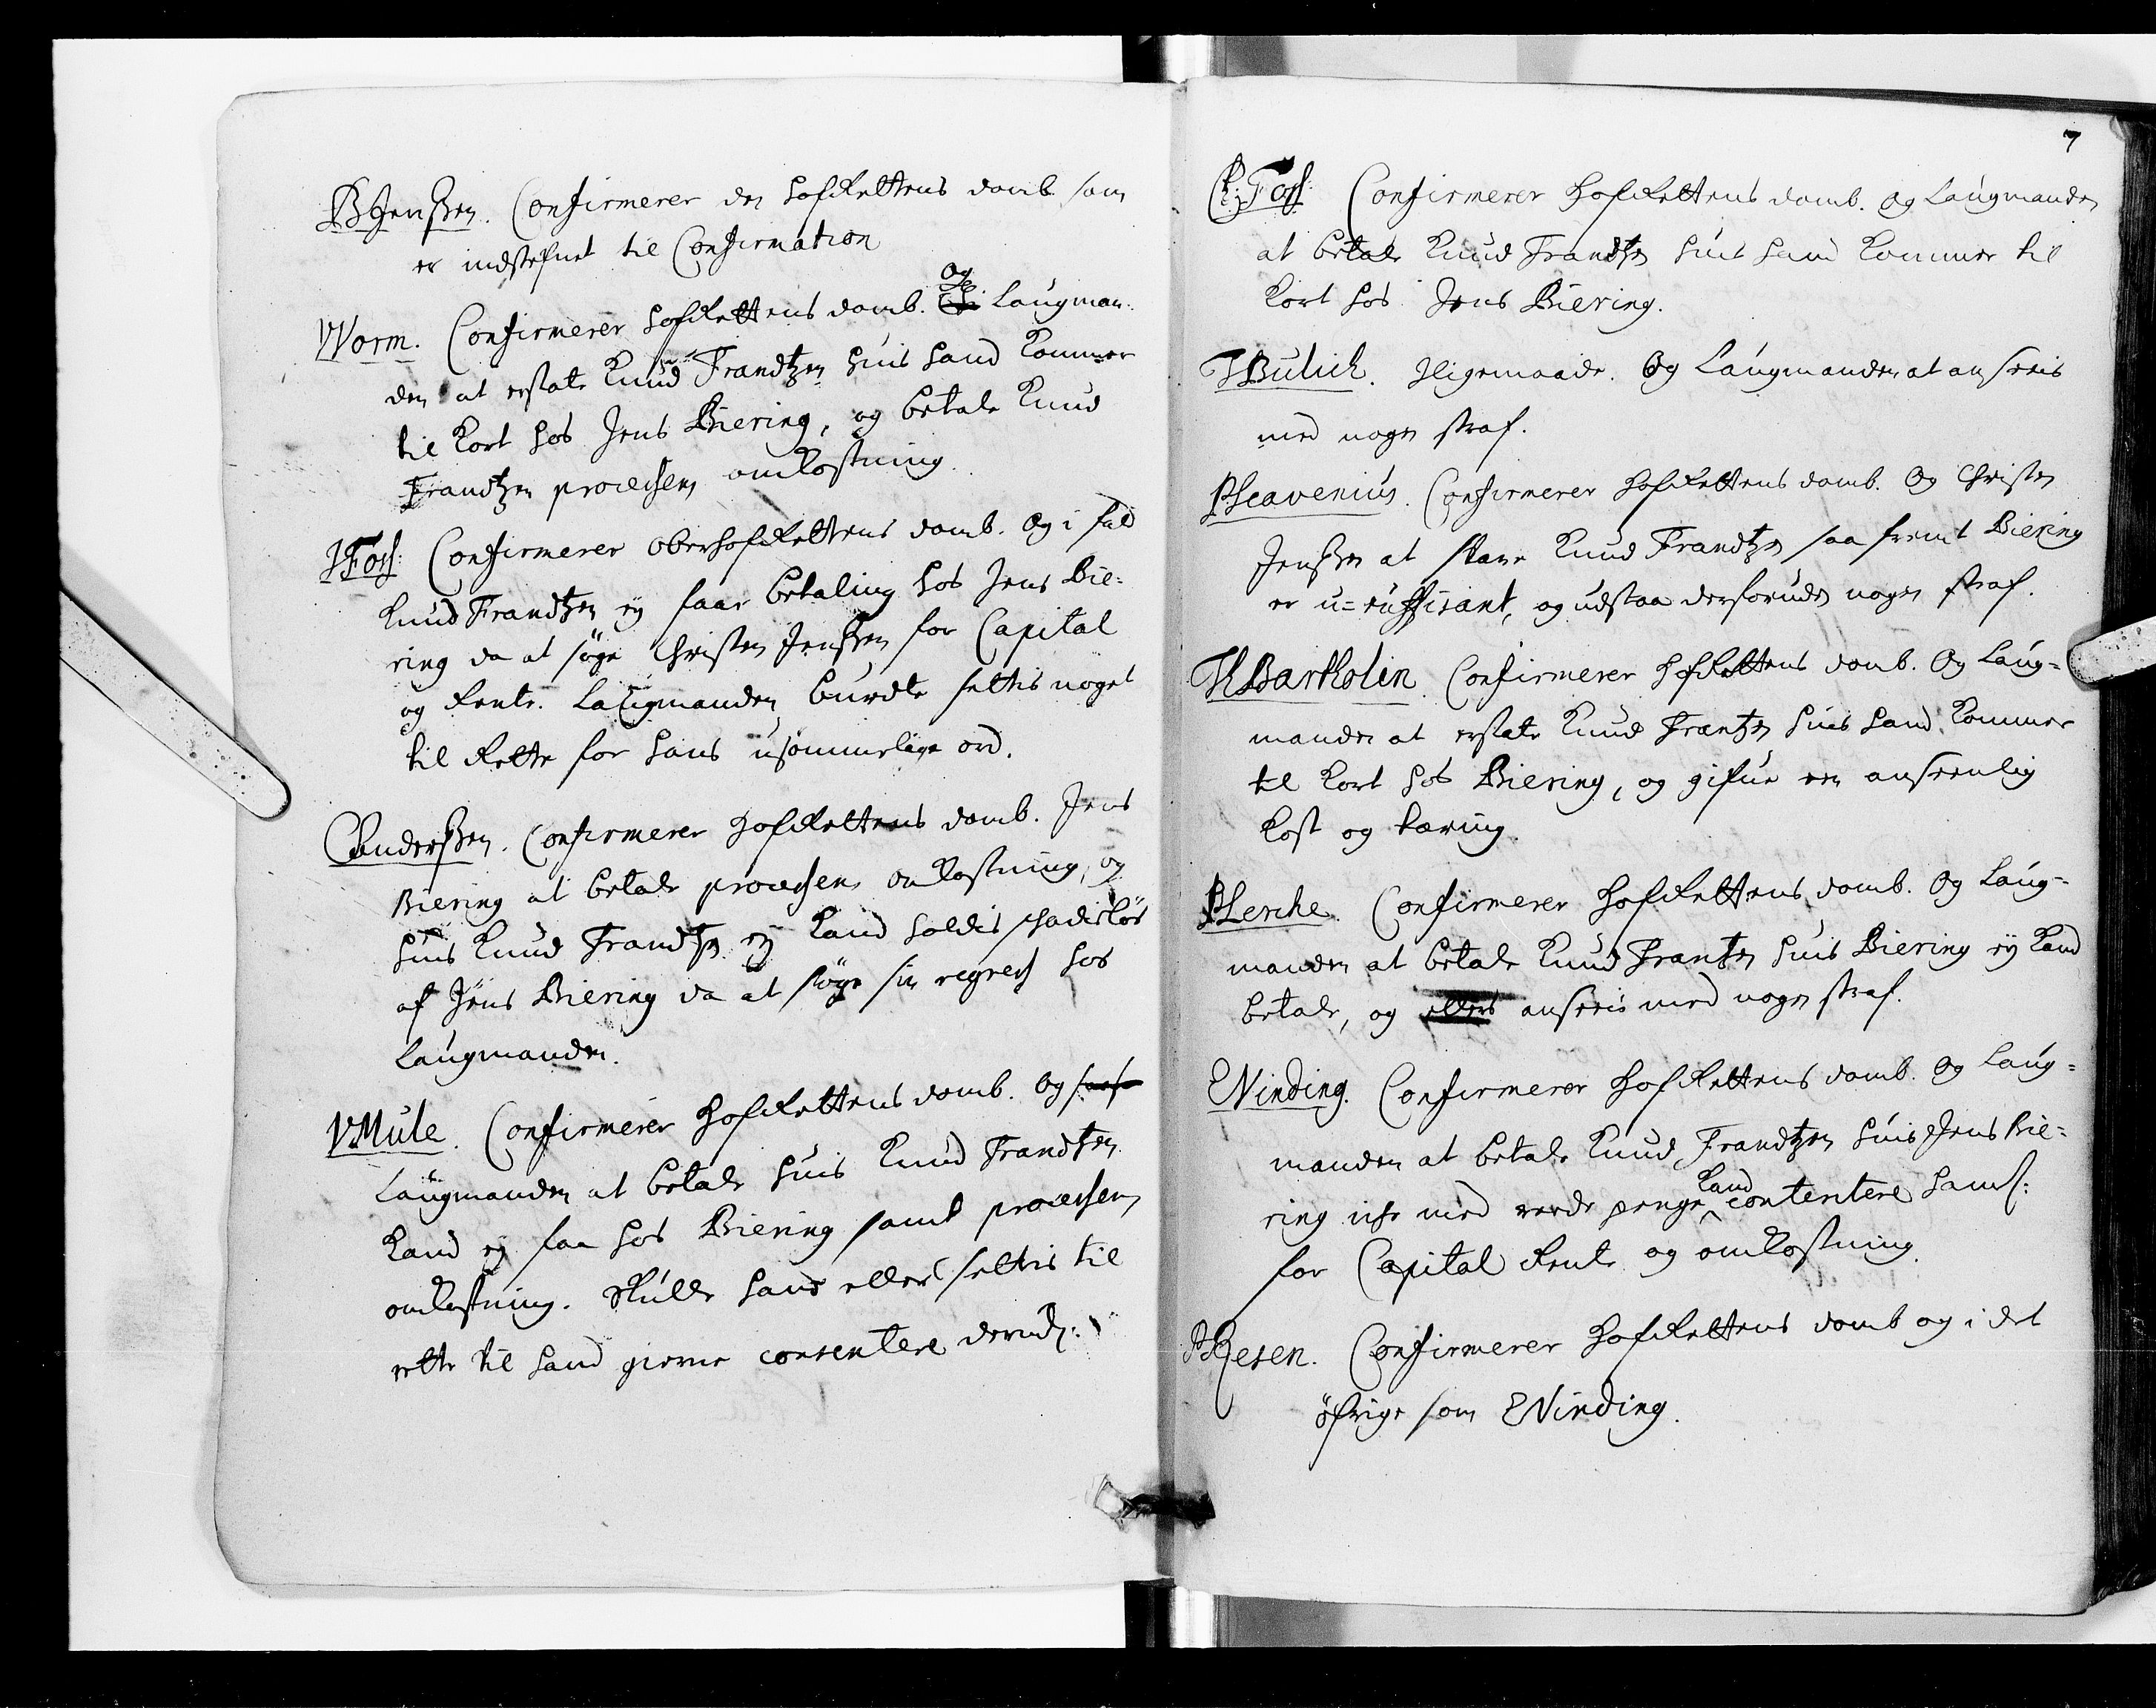 BJenßen. Confirmerer den HofRettens domb som
er indstefnet til Confirmation
Worm. Confirmerer HofRettens domb. Og Laugman-
den at erstate Knud Frandtzen huis hand kommer
til kort hos Jens Biering, og betale Knud
Frandtzen processens omkostning.
JFoss: Confirmerer OberhofRettens domb. Og i fald
Knud Frandtzen ey faar betaling hos Jens Bie-
ring da at søge Christen Jenßen for Capital
og Rente. Laugmanden burdte settis noget
til Rette for hans usømmelige ord.
CAnderßen. Confirmerer HofRettens domb. Jens
Biering at betale processens omkostning, og
huis Knud Frandtzen ey kand holdis schadisløs
af Jens Biering da at søge sin regress hos
Laugmanden.
VMule. Confirmerer HofRettens domb. Og
Laugmanden at betale huis Knud Frandtzen
kand ey faa hos Biering samt processens
omkostning. Skulle hand ellers settis til
rette vil hand gierne consentere derudj:
7
C:Foss: Confirmerer HofRettens domb. Og Laugmanden
at betale Knud Frandtzen huis hand kommer til
kort hos Jens Biering.
JBulich. Iligemaade. Og Laugmanden at anseeis
med nogen straf.
PScavenius. Confirmerer HofRettens domb. Og Christen
Jenßen at svare Knud Frandtzen saa fremt Biering
er u-suffisant, og udstaa desforuden nogen straf.
TBartholin. Confirmerer HofRettens domb. Og Laug-
manden at erstate Knud Frantzen huis hand kommer
til kort hos Biering, og gifue een anseenlig
kost og tæring.
PLerche. Confirmerer HofRettens domb. Og Laug-
manden at betale Knud Frantzen huis Biering ey kand
betale, og ellers anseeis med nogen straf.
EVinding. Confirmerer HofRettens domb. Og Laug-
manden at betale Knud Frandtzen huis Jens Bie-
ring icke med reede penge kand contentere hannem:
for Capital Rente og omkostning.
PResen. Confirmerer HofRettens domb og i det
øfrige som EVinding.